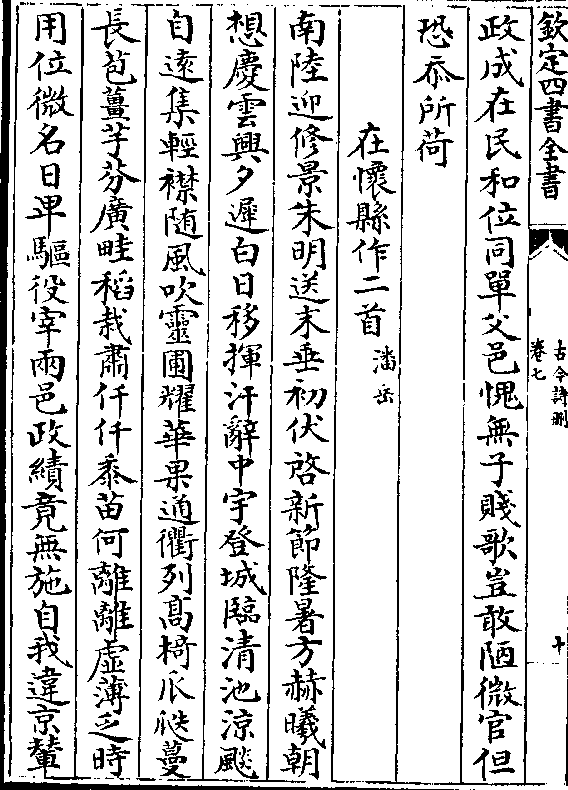 欽定四庫全書
古今詩刪
卷七
十
政成在民和位同單父邑愧無子賤歌豈敢陋微官但
恐忝所荷
在懷縣作二首潘岳
南陸迎修景朱明送末垂初伏啓新節隆暑方赫曦朝
想慶雲興夕遲白日移揮汗辭中宇登城臨清池涼飈
自遠集輕襟随風吹靈圃耀華果通衢列高椅瓜瓞蔓
長苞薑芋芬廣畦稻栽肅仟仟黍苗何離離虛薄乏時
用位微名日卑驅役宰兩邑政績竟無施自我違京輦